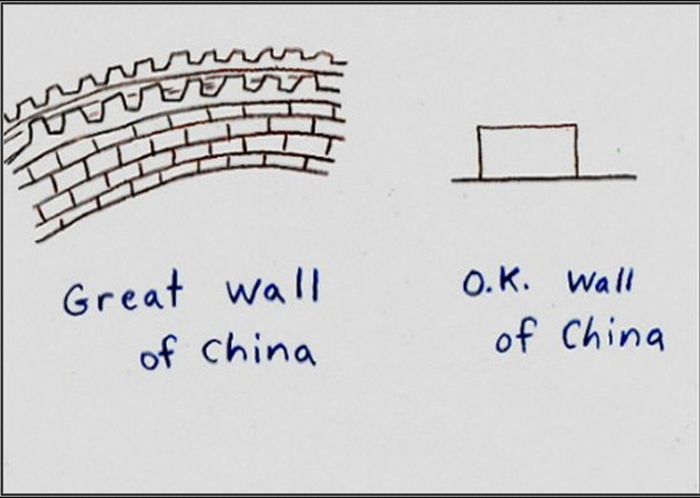 Great Wall
of China
O.K. Wall
of China